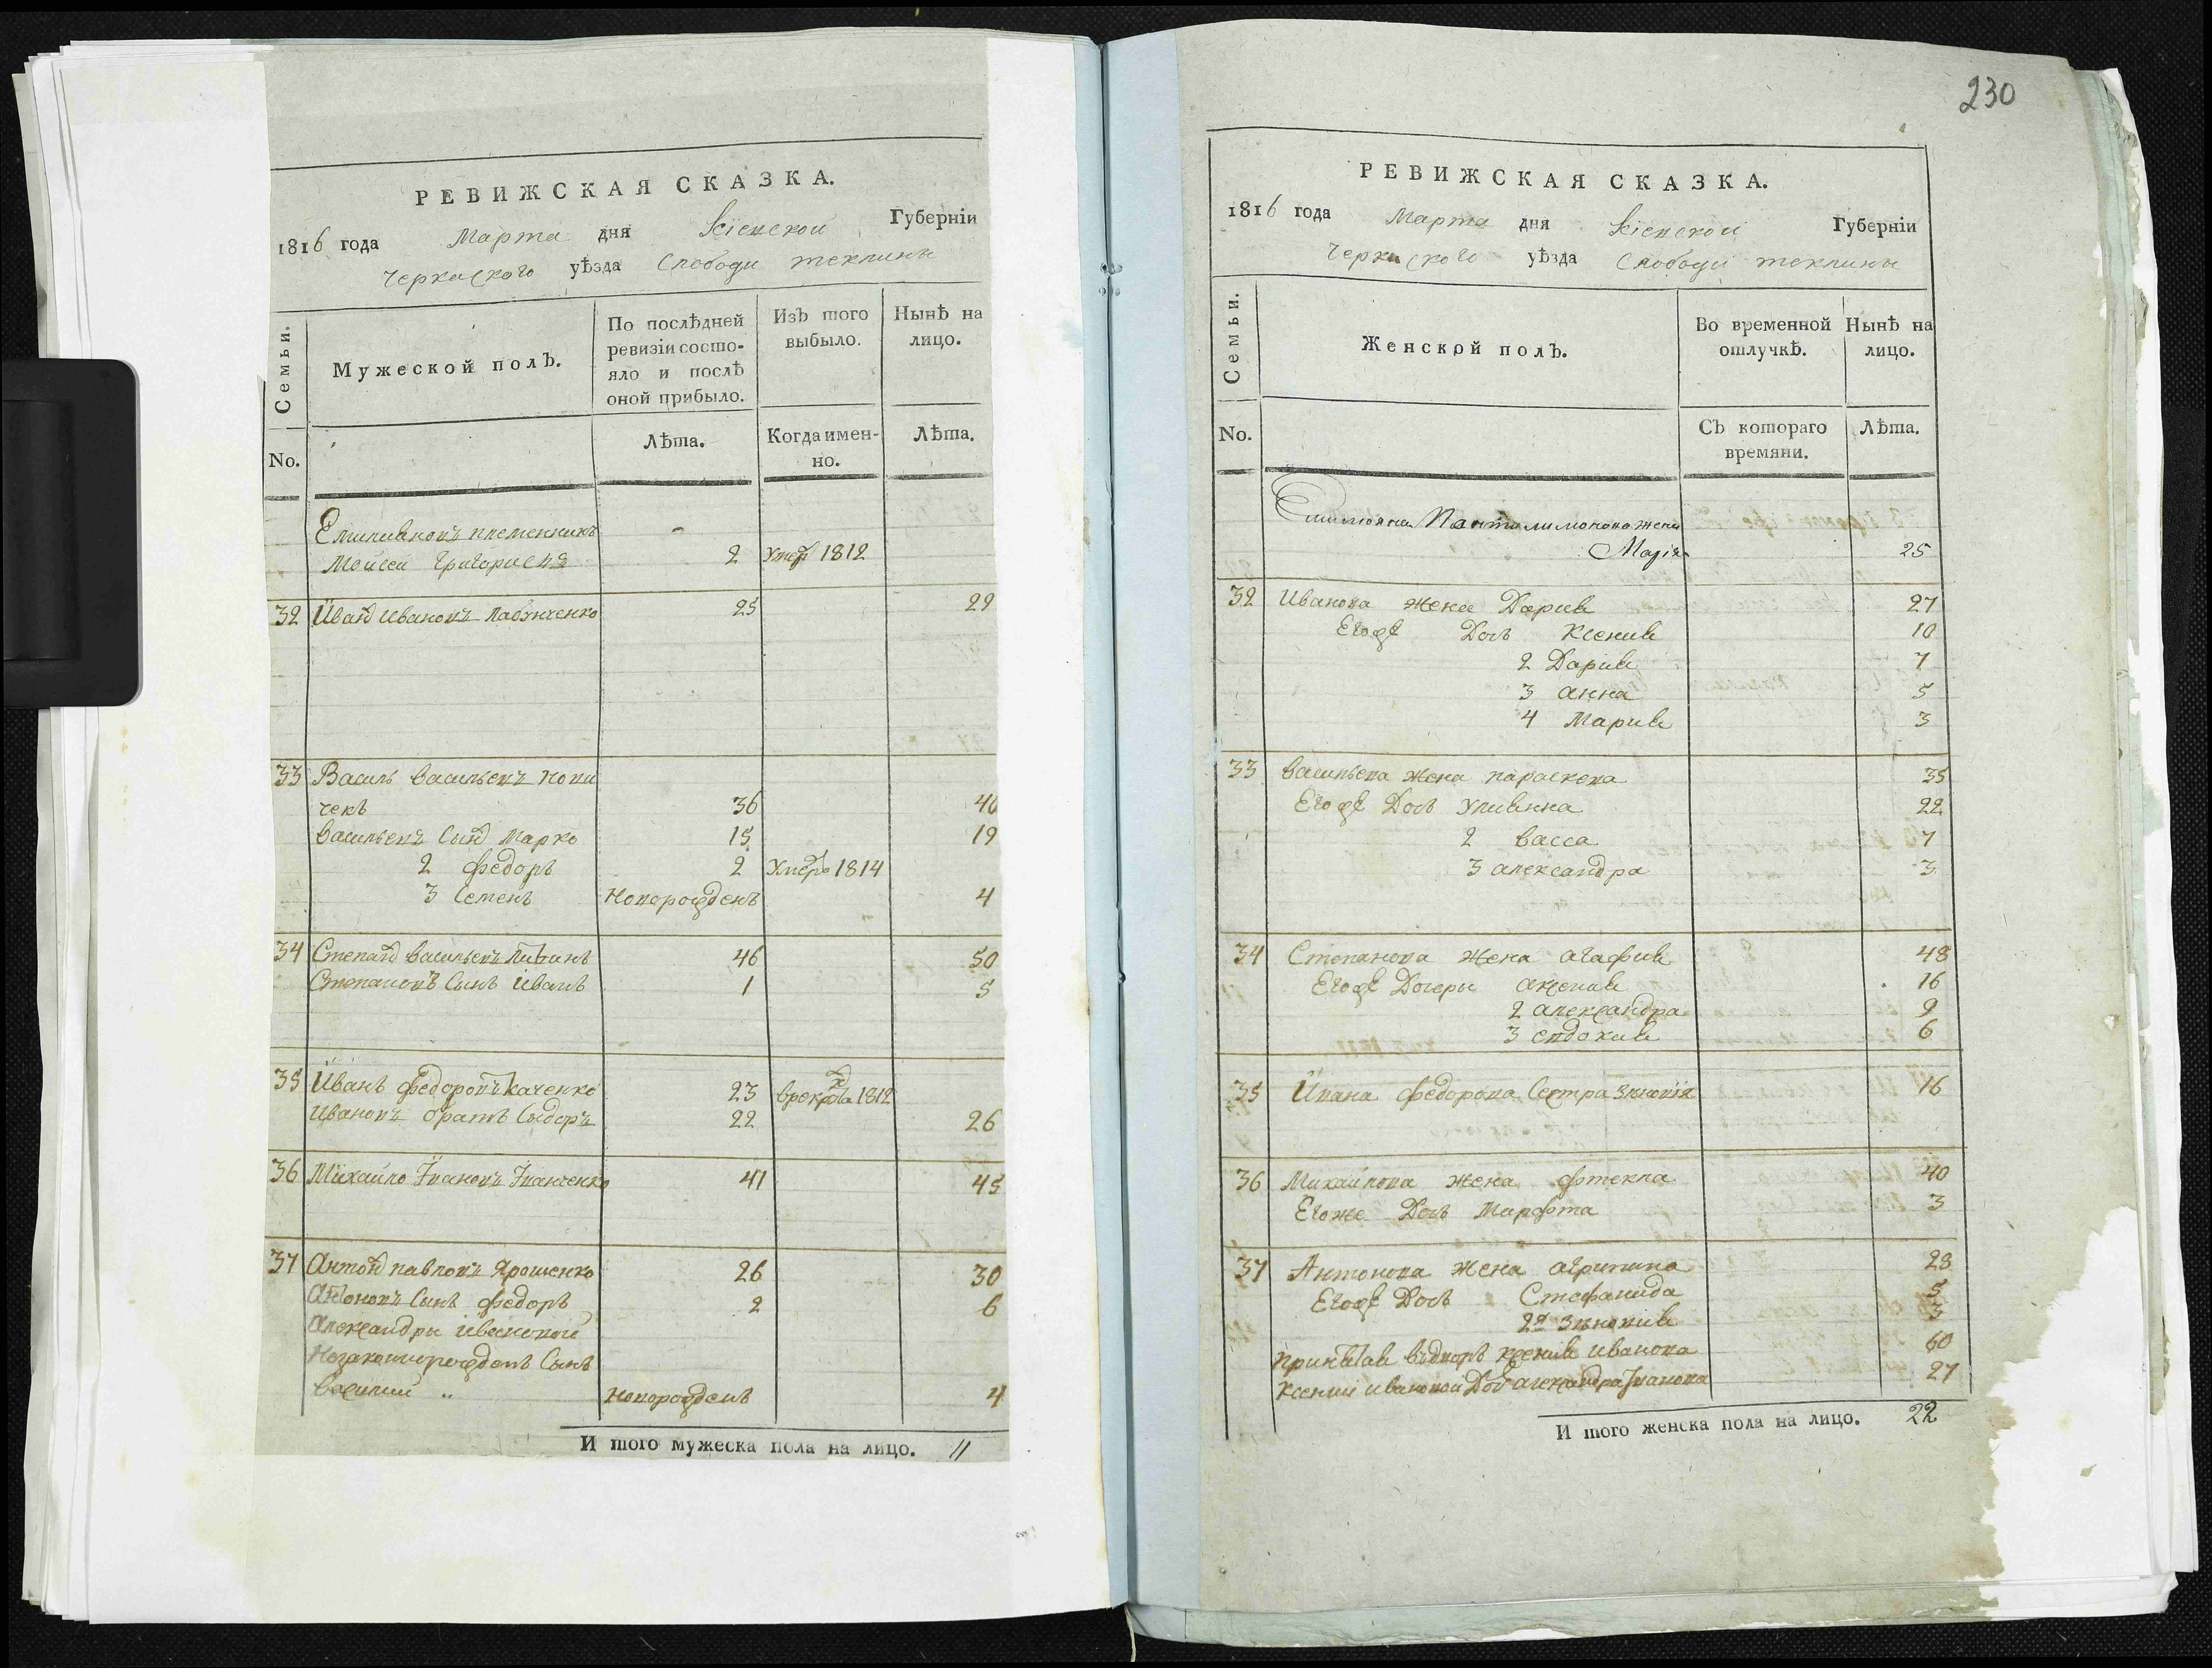 РЕВИЖСКАЯ СКАЗКА.
1816 года Марта дня Кіевской Губерніи
Черкаского уѣзда Слободи теклины
Семьи.
Мужеской полъ.
По послѣдней ревизіи состояло и послѣ оной прибыло.
Изъ того выбыло.
Нынѣ на лицо.
No.
Лѣта.
Когда именно.
Лѣта.
Емилиановъ племенникъ
Моисей Григориевъ 2 Умер 1812
32 Иванъ Ивановъ 25 29
33 Василь Васильевъ
чекъ 36 40
Васильевъ Сынъ Марко 15 19
2 Федоръ 2 Умеръ 1814
3 Семенъ Новорожденъ 4
34 Степанъ Васильевъ 46 50
Степановъ Сынъ Иванъ 1 5
35 Иванъ Федоровъ 23 1812
Ивановъ братъ Сидоръ 22 26
36 Михайло Ивановъ Иванченко 41 45
37 Антонъ павловъ Ярошенко 26 30
Антоновъ Сынъ Федоръ 2 6
Александры Ивановой
Незаконнорожденъ Сынъ
Василий Новорожденъ 4
И того мужеска пола на лицо. 11
230
РЕВИЖСКАЯ СКАЗКА.
1816 года Марта дня Кіевской Губерніи
Черкаского уѣзда Слободи теклины
Семьи.
Женской полъ.
Во временной отлучкѣ.
Нынѣ на лицо.
No.
Съ котораго времяни.
Лѣта.
Емилияна Пантилимонова жена
Марія 25
32 Иванова жена Дария 27
Егоже Дочь Ксения 10
2 Дария 7
3 анна 5
4 Мария 3
33 Васильева жена параскева 35
Егоже Дочь Улиянна 22
2 васса 7
3 александра 3
34 Степанова жена агафия 48
Егоже Дочеры аксения 16
2 александра 9
3 евдокия 6
35 Ивана Федорова Сестра Зѣновія 16
36 Михайлова жена фтекла 40
Егоже Дочь Марфта 3
37 Антонова жена агрипина 28
Егоже Дочь Стефанида 5
2я Зѣновия 3
въдворъ ксения иванова 60
Ксении ивановой Доч александра Иванова 27
И того женска пола на лицо. 22